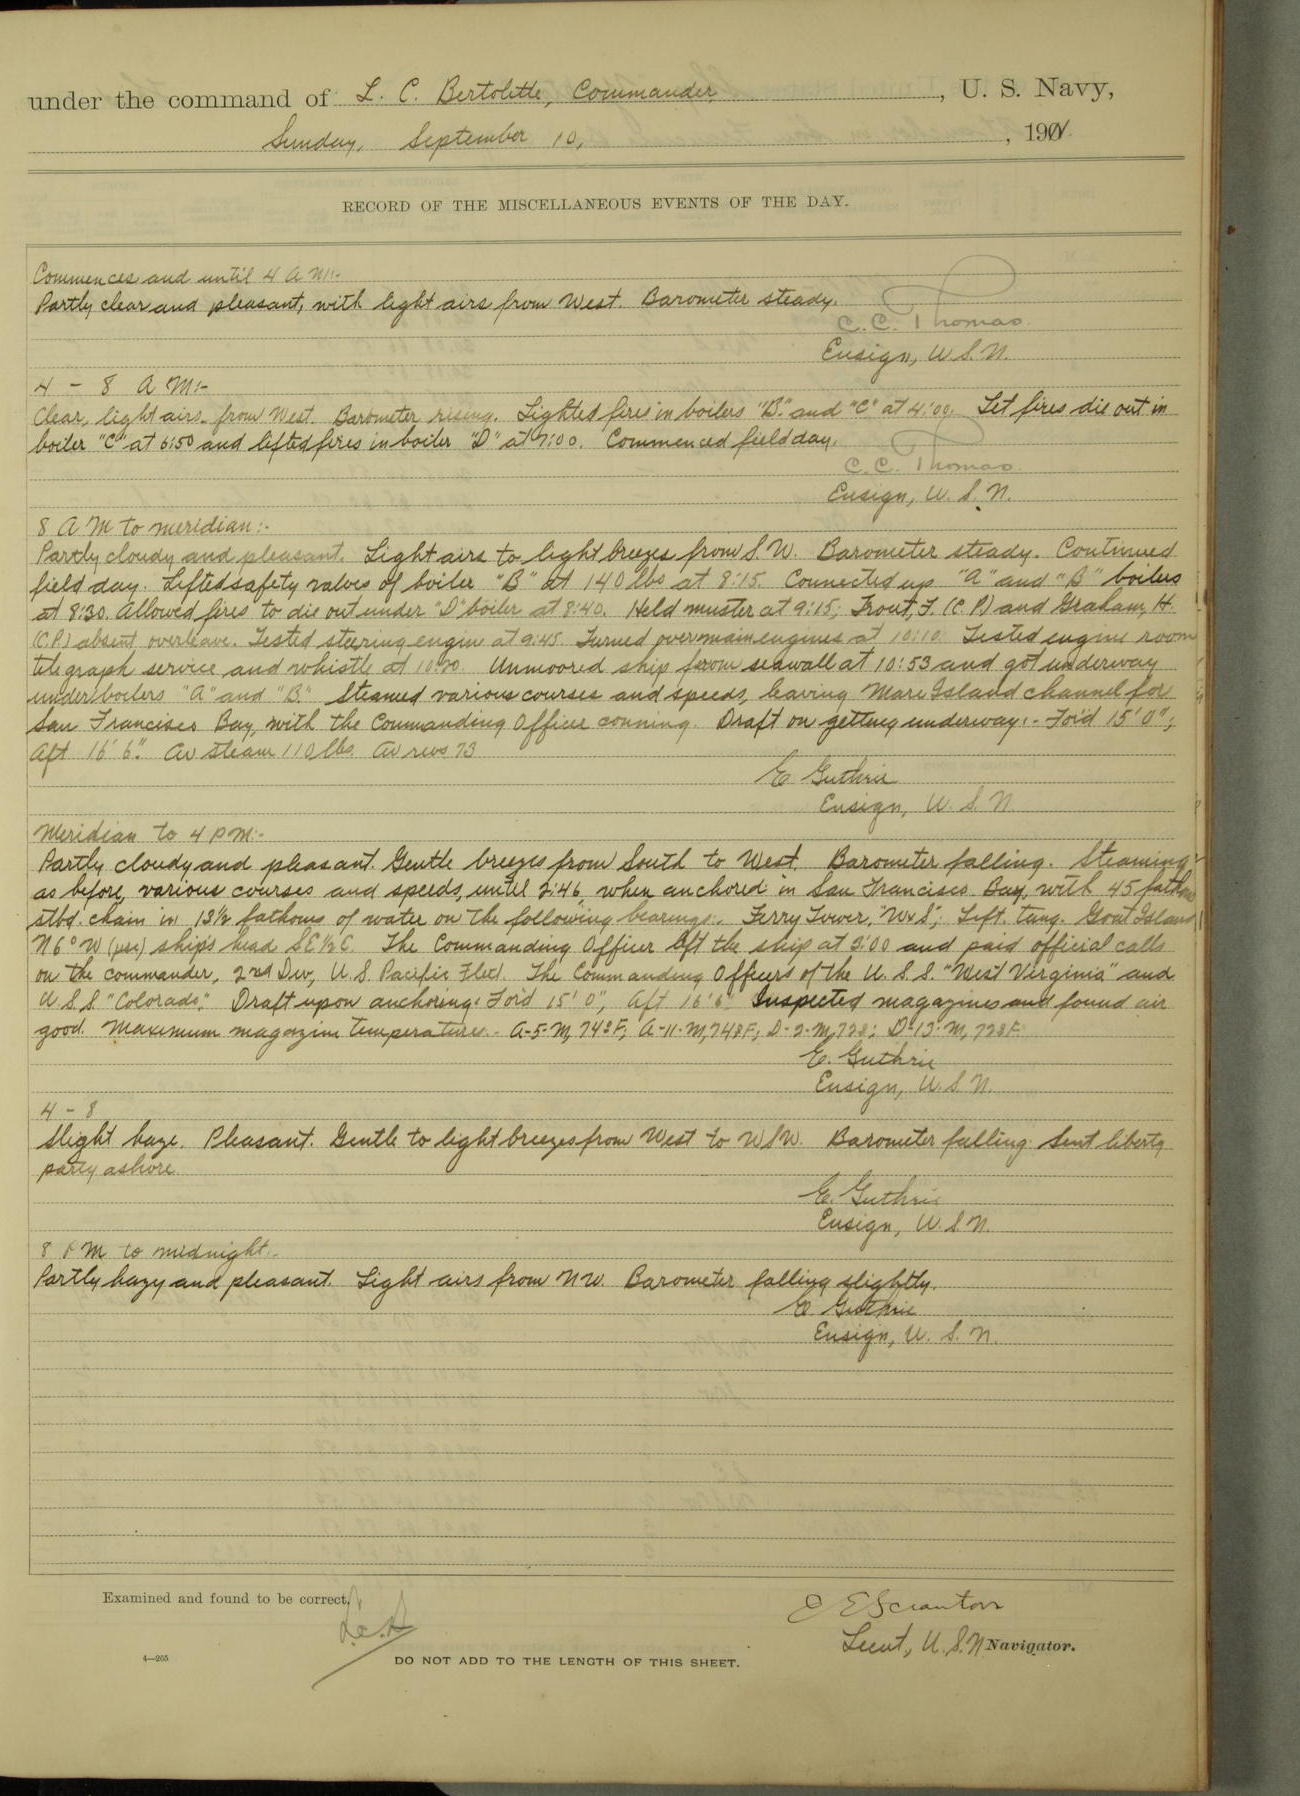 under the command of L. C. Bertolette, Commander, U. S. Navy,
Sunday, September 10, 190
RECORD OF THE MISCELLANEOUS EVENTS OF THE DAY.
Commences and until 4 A M:-
Partly clear and pleasant, with light airs from West. Barometer steady.
C. C. Thomas
Ensign, U.S.N.
4 - 8 A M:-
Clear, light airs from West. Barometer rising. Lighted fires in boilers "B" and "C" at 4:00. Let fires die out in
boiler "C" at 6:50 and lifted fires in boiler "D" at 7:00. Commenced field day.
C. C. Thomas
Ensign, U. S. N.
8 A M to meridian:-
Partly cloudy and pleasant. Light airs to light breezes from S.W. Barometer steady. Continued
field day. Lifted safety valves of boiler "B" at 140 lbs at 8:15. Connected up "A" and "B" boilers
at 8:30. Allowed fires to die out under "D" boiler at 8:40. Held muster at 9:15; Trout, F. (C.P.) and Graham, H.
(C.P.) absent overleave. Tested steering engine at 9:45. Turned over main engines at 10:10. Tested engine room
telegraph service, and whistle at Unmoored ship from seawall at 10:53 and got underway
under boilers "A" and "B". Steamed various courses and speeds, leaving Mare Island channel for
San Francisco Bay, with the Commanding Officer conning. Draft on getting underway:- For'd 15' 0";
Aft 16' 6". Av steam 110 lbs. Av revs 73
E Guthrie
Ensign, U. S. N.
Meridian to 4 P M:-
Partly cloudy and pleasant. Gentle breezes from South to West. Barometer falling. Steaming
as before, various courses and speeds, until 2:46, when anchored in San Francisco Bay, with 45 fathoms
stbd. chain in 13½ fathoms of water on the following bearings:- Ferry Tower, "WxS"; Left. tang. Goat Island
N 6° W (psc) ship's head SE½E. The Commanding Officer left the ship at 3:00 and paid official calls
on the commander, 2nd Div, U. S. Pacific Fleet. The Commanding Officers of the U. S. S. "West Virginia" and
U.S.S. "Colorado". Draft upon anchoring: For'd 15' 0", Aft 16' 6". Inspected magazines and found air
good. Maximum magazine temperature:- A-5-M, 74°F; A-11-M, 74°F; D-2-M, 72°; D-13-M, 72°F.
E. Guthrie
Ensign, U.S.N.
4 - 8
Slight haze. Pleasant. Gentle to light breezes from West to WSW. Barometer falling. Sent liberty
party ashore.
E. Guthrie
Ensign, U.S.N.
8 P M to midnight:-
Partly hazy and pleasant. Light airs from NW. Barometer falling slightly.
E. Guthrie
Ensign, U. S. N.
Examined and found to be correct.
E Scranton
Lieut, U.S.N. Navigator.
4—205
DO NOT ADD TO THE LENGTH OF THIS SHEET.